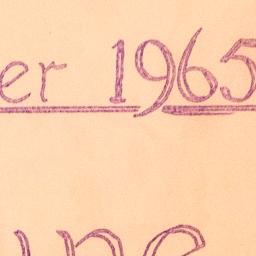 er 1965
une